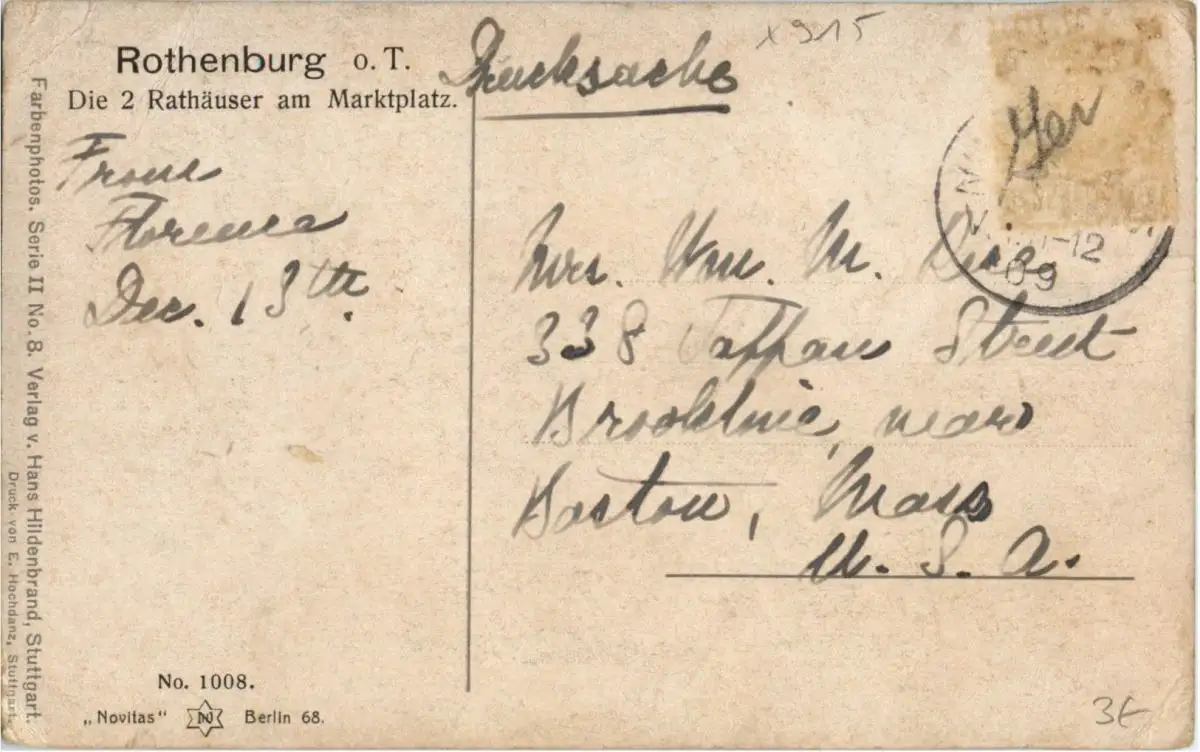 Rothenburg o. T.
Die 2 Rathäuser am Marktplatz.
Drucksache
x 915
Ger
From
Florence
Dec. 13th.
Mrs. Wm. M.
338 Tappan Street
Brookline, near
Boston, Mass
U. S. A.
-12
09
Farbenphotos. Serie II No. 8. Verlag v. Hans Hildenbrand, Stuttgart.
Druck von E. Hochdanz, Stuttgart.
No. 1008.
„Novitas“ N Berlin 68.
3€